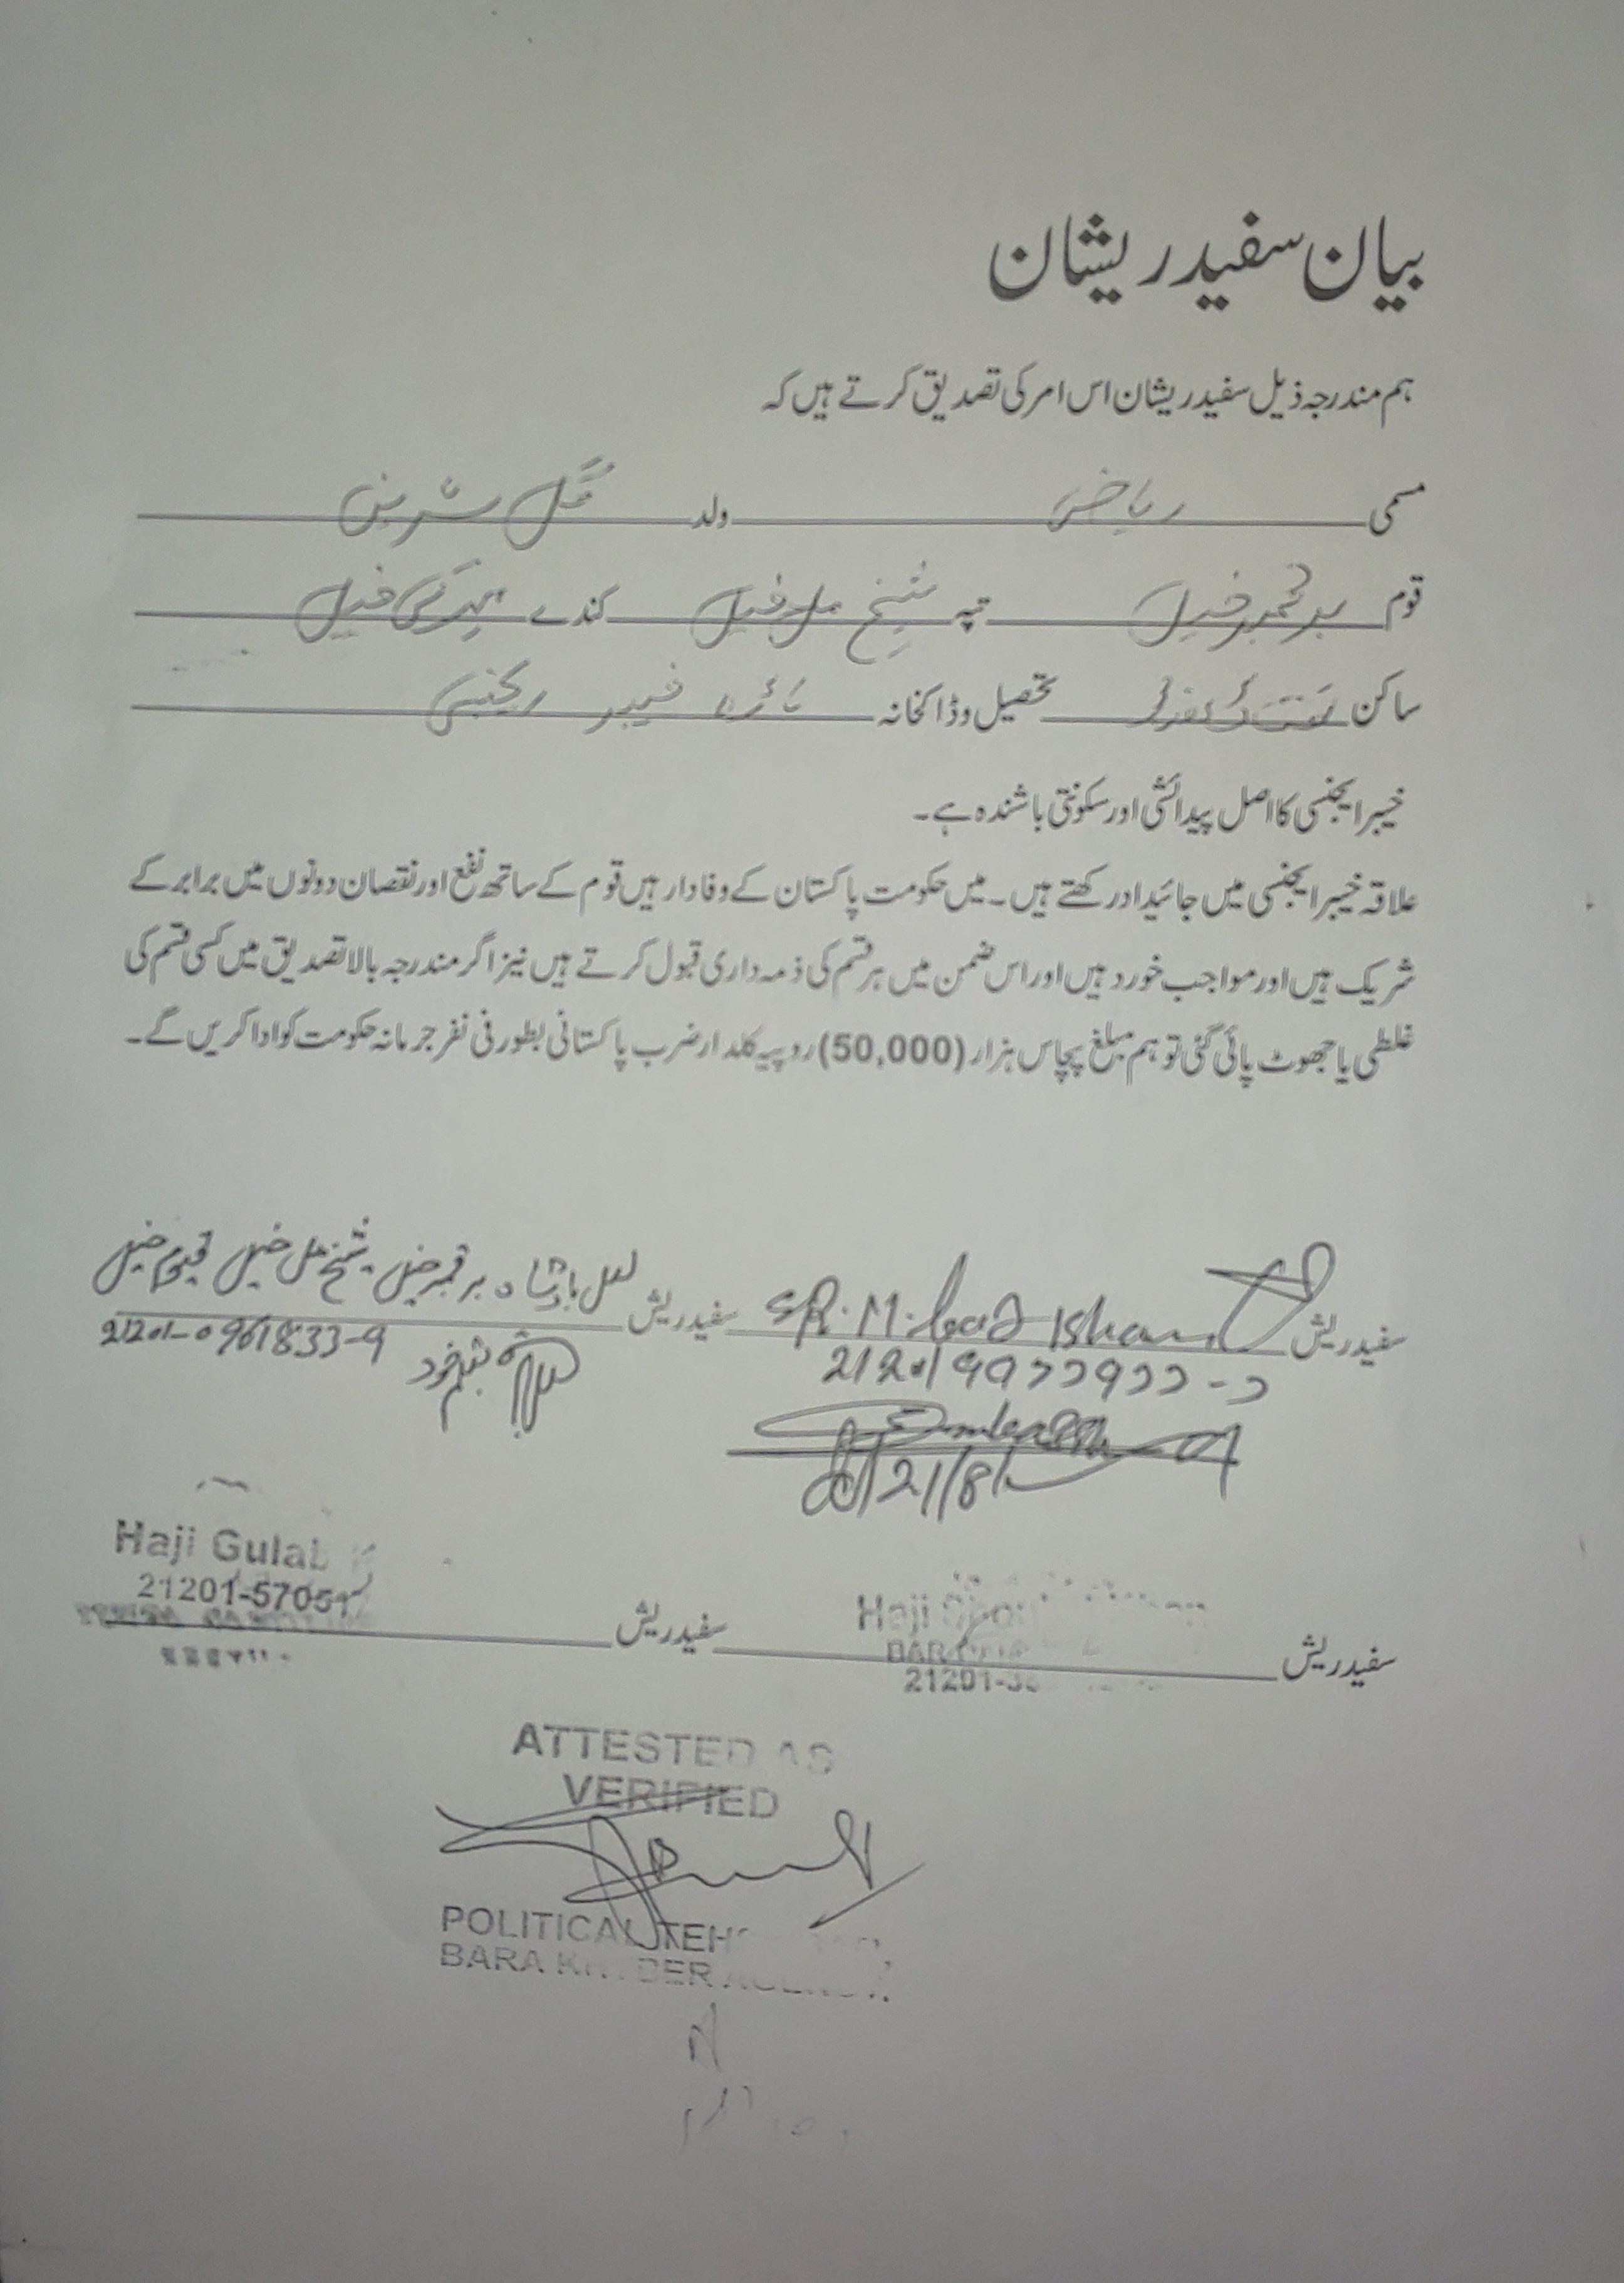 بیان سفید ریشان
ہم مندرجہ ذیل سفید ریشان اس امر کی تصدیق کرتے ہیں کہ
مسمی ریاض ولد گل شرین
قوم برقمبرخیل تپہ شیخ مل خیل کندے خیل
ساکن تحصیل و ڈاکخانہ باڑہ خیبر ایجنسی
خیبر ایجنسی کا اصل پیدائشی اور سکونتی باشندہ ہے۔
علاقہ خیبر ایجنسی میں جائیداد رکھتے ہیں۔ میں حکومت پاکستان کے وفادار ہیں قوم کے ساتھ نفع اور نقصان دونوں میں برابر کے
شریک ہیں اور مواجب خورد ہیں اور اس ضمن میں ہر قسم کی ذمہ داری قبول کرتے ہیں نیز اگر مندرجہ بالا تصدیق میں کسی قسم کی
غلطی یا جھوٹ پائی گئی تو ہم مبلغ پچاس ہزار (50,000) روپیہ کلدار ضرب پاکستانی بطور فی نفر جرمانہ حکومت کو ادا کریں گے۔
سفید ریش
سفید ریش لعل بادشاہ برقمبرخیل شیخ مل خیل قیوم خیل
21201-0961833-9
بقلم خود
21/8/
سفید ریش Haji
21201-
سفید ریش Haji Gulab
21201-57051
ATTESTED AS
VERIFIED
POLITICAL TEH
BARA KHYBER AGENCY